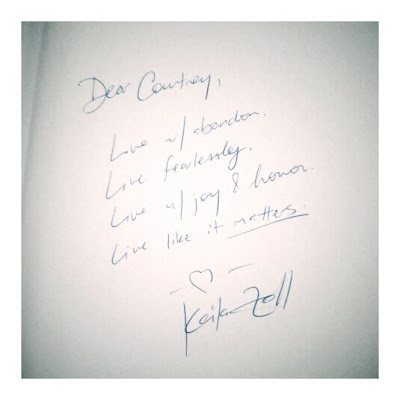 Dear Courtney,
Live w/ abandon.
Live fearlessly.
Live w/ joy & honor.
Live like it matters.
Keiko Zoll